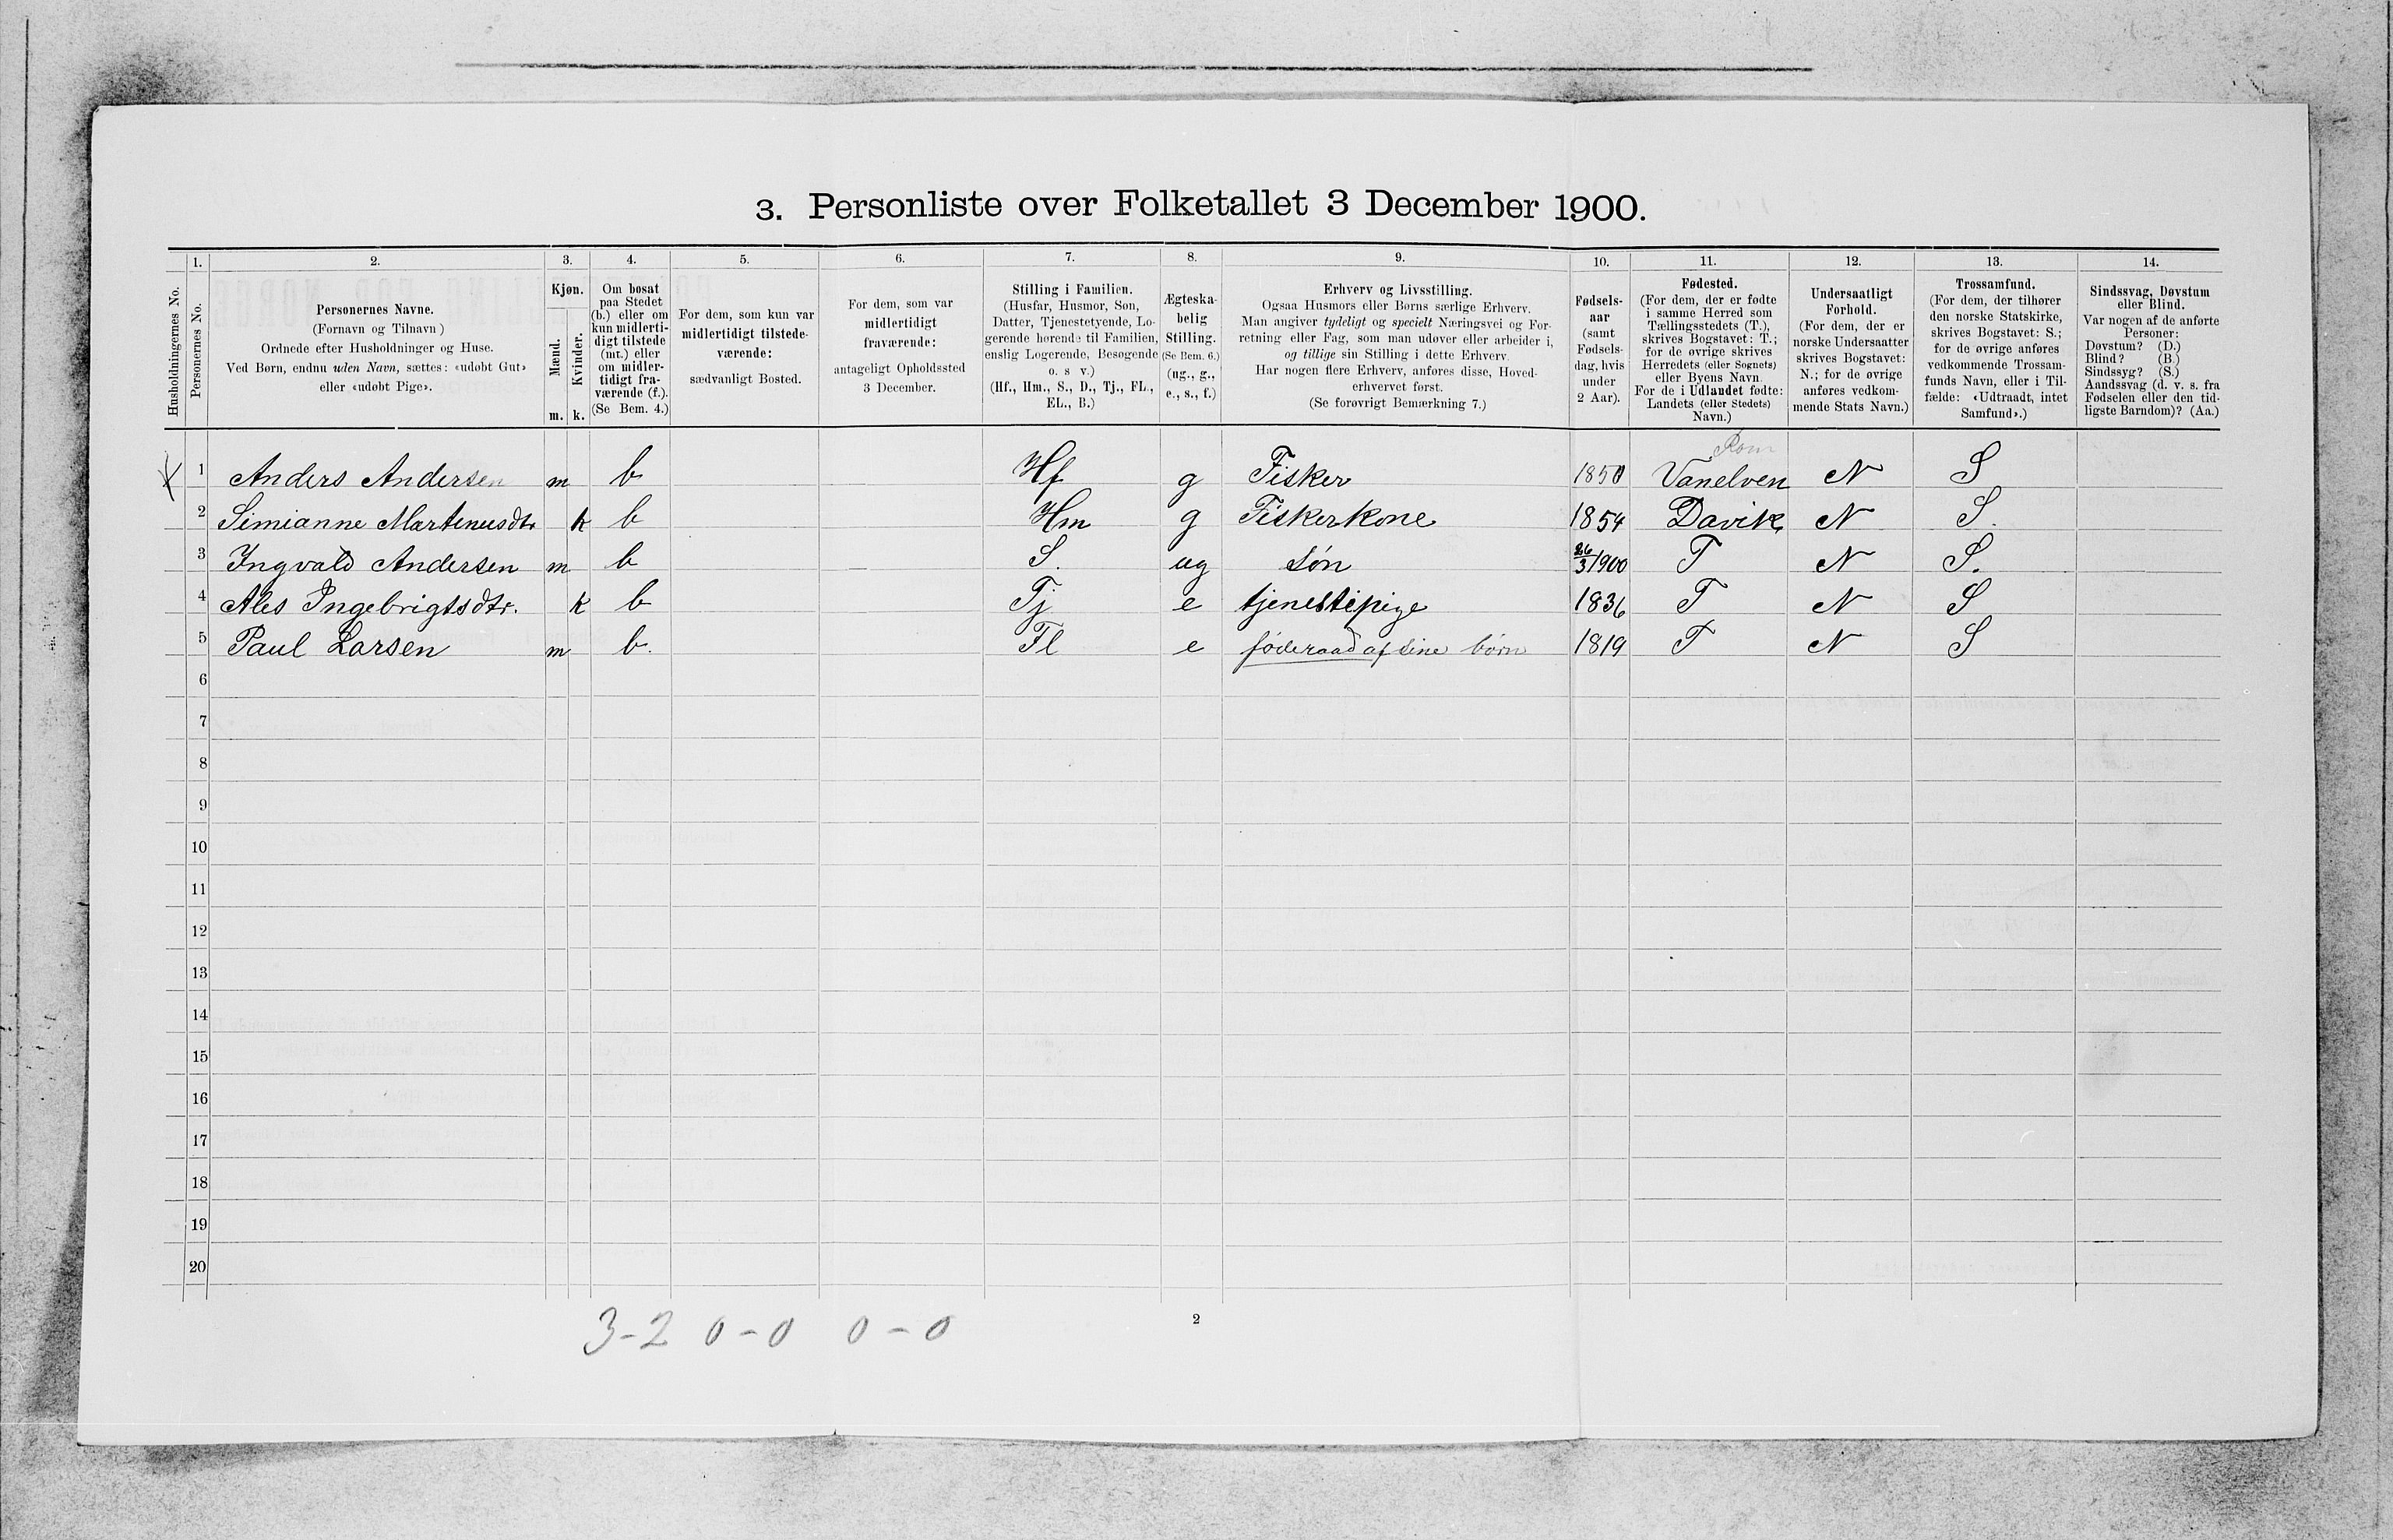 3. Personliste over Folketallet 3 December 1900.
1. 2. 3. 4. 5. 6. 7. 8. 9. 10. 11. 12. 13. 14.
Husholdningernes No.
Personernes No.
Personernes Navne.
(Fornavn og Tilnavn)
Ordnede efter Husholdninger og Huse.
Ved Børn, endnu uden Navn, sættes: «udøbt Gut»
eller «udøbt Pige».
Kjøn.
Mænd.
Kvinder.
m. k.
Om bosat
paa Stedet
(b.) eller om
kun midlerti-
digt tilstede
(mt.) eller
om midler-
tidigt fra-
værende (f.).
(Se Bem. 4.)
For dem, som kun var
midlertidigt tilstede-
værende:
sædvanligt Bosted.
For dem, som var
midlertidigt
fraværende:
antageligt Opholdssted
3 December.
Stilling i Familien.
(Husfar, Husmor, Søn,
Datter, Tjenestetyende, Lo-
gerende hørende til Familien,
enslig Logerende, Besøgende
o. s v.)
(Hf., Hm., S., D., Tj., FL.,
EL., B.)
Ægteska-
belig
Stilling.
(Se Bem. 6.)
(ug., g.,
e., s., f.)
Erhverv og Livsstilling.
Ogsaa Husmors eller Børns særlige Erhverv.
Man angiver tydeligt og specielt Næringsvei og For-
retning eller Fag, som man udøver eller arbeider i,
og tillige sin Stilling i dette Erhverv.
Har nogen flere Erhverv, anføres disse, Hoved-
erhvervet først.
(Se forøvrigt Bemærkning 7.)
Fødsels-
aar
(samt
Fødsels-
dag, hvis
under
2 Aar).
Fødested.
(For dem, der er fødte
i samme Herred som
Tællingsstedets (T.),
skrives Bogstavet: T.;
for de øvrige skrives
Herredets (eller Sognets)
eller Byens Navn.
For de i Udlandet fødte:
Landets (eller Stedets)
Navn.)
Undersaatligt
Forhold.
(For dem, der er
norske Undersaatter
skrives Bogstavet:
N.; for de øvrige
anføres vedkom-
mende Stats Navn.)
Trossamfund.
(For dem, der tilhører
den norske Statskirke,
skrives Bogstavet: S.;
for de øvrige anføres
vedkommende Trossam-
funds Navn, eller i Til-
fælde: «Udtraadt, intet
Samfund».)
Sindssvag, Døvstum
eller Blind.
Var nogen af de anførte
Personer:
Døvstum? (D.)
Blind? (B.)
Sindssyg? (S.)
Aandssvag (d. v. s. fra
Fødselen eller den tid-
ligste Barndom)? (Aa.)
Rom
X 1 Anders Andersen m b Hf g Fisker 1850 Vanelven N S
2 Simianne Martinusdtr k b Hm g Fiskerkone 1854 Davik N S.
3 Ingvald Andersen m b — S. ug søn 26/3 1900 T N S.
4 Ales Ingebrigtsdtr. k b Tj e tjenestepige 1836 T N S
5 Paul Larsen m b. Fl e føderaad af sine børn 1819 T N S
6
7
8
9
10
11
12
13
14
15
16
17
18
19
20
3-2 0-0 0-0
2